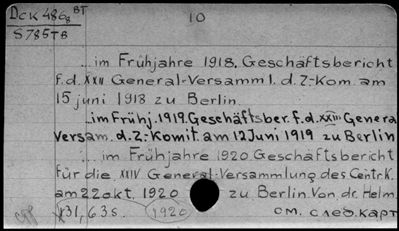 DcK 4868 BT
10
S785TB
...im Frühjahre 1918. Geschäftsbericht
f.d. XXII General-Versamml. d. Z.-Kom. am
15 juni 1918 zu Berlin.
...im Frühj. 1919. Geschäftsber. f.d. XXIII General
Versam. d. Z.-Komit. am 12 Juni 1919 zu Berlin
...im Frühjahre 1920. Geschäftsbericht
für die XXIV General-Versammlung des Centr. K.
am 22 okt. 1920 zu Berlin. Von dr. Helm.
131, 63 s. 1920 см. след. карт